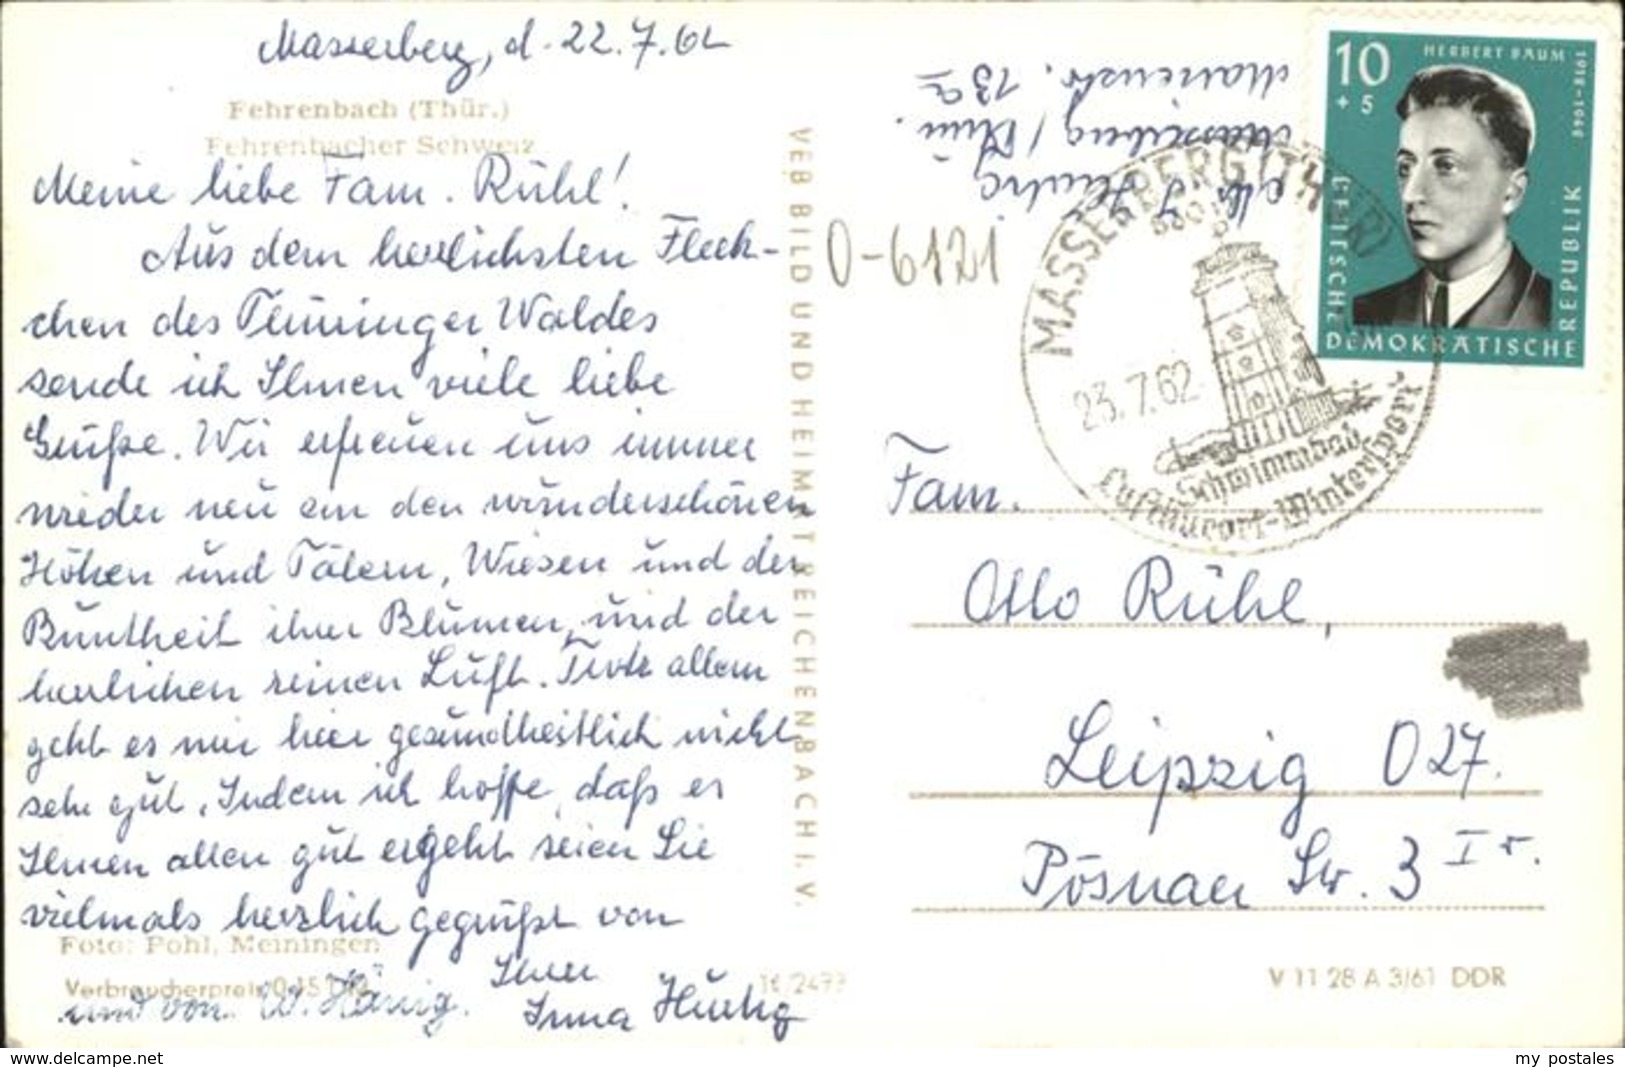 Masserberg, d. 22.7.62
Fehrenbach (Thür.)
Fehrenbacher Schweiz
Meine liebe Fam. Rühl!
Aus dem herrlichsten Fleck-
chen des Thüringer Waldes
sende ich Ihnen viele liebe
Grüße. Wir erfreuen uns immer
wieder neu an den wunderschönen
Höhen und Tälern, Wiesen und der
Buntheit ihrer Blumen, und der
herrlichen reinen Luft. Trotz allem
geht es mir hier gesundheitlich nicht
sehr gut. Indem ich hoffe, daß es
Ihnen allen gut ergeht seien Sie
vielmals herzlich gegrüßt von
Foto: Pohl, Meiningen
Ihrer
Verbraucherpreis 0,15 DM
und von W. Hörnig.
Irma
VEB BILD UND HEIMAT REICHENBACH I. V.
Masserberg / Thür.
13a
0-6121
10
+ 5
HERBERT BAUM
1912-1942
DEUTSCHE
DEMOKRATISCHE
REPUBLIK
MASSERBERG (THÜR)
23.7.62
Schwimmbad
Luftkurort-Wintersport
Fam.
Otto Rühl,
Leipzig O27.
Pösnaer Str. 3 I r.
V 11 28 A 3/61 DDR
www.delcampe.net
my postales